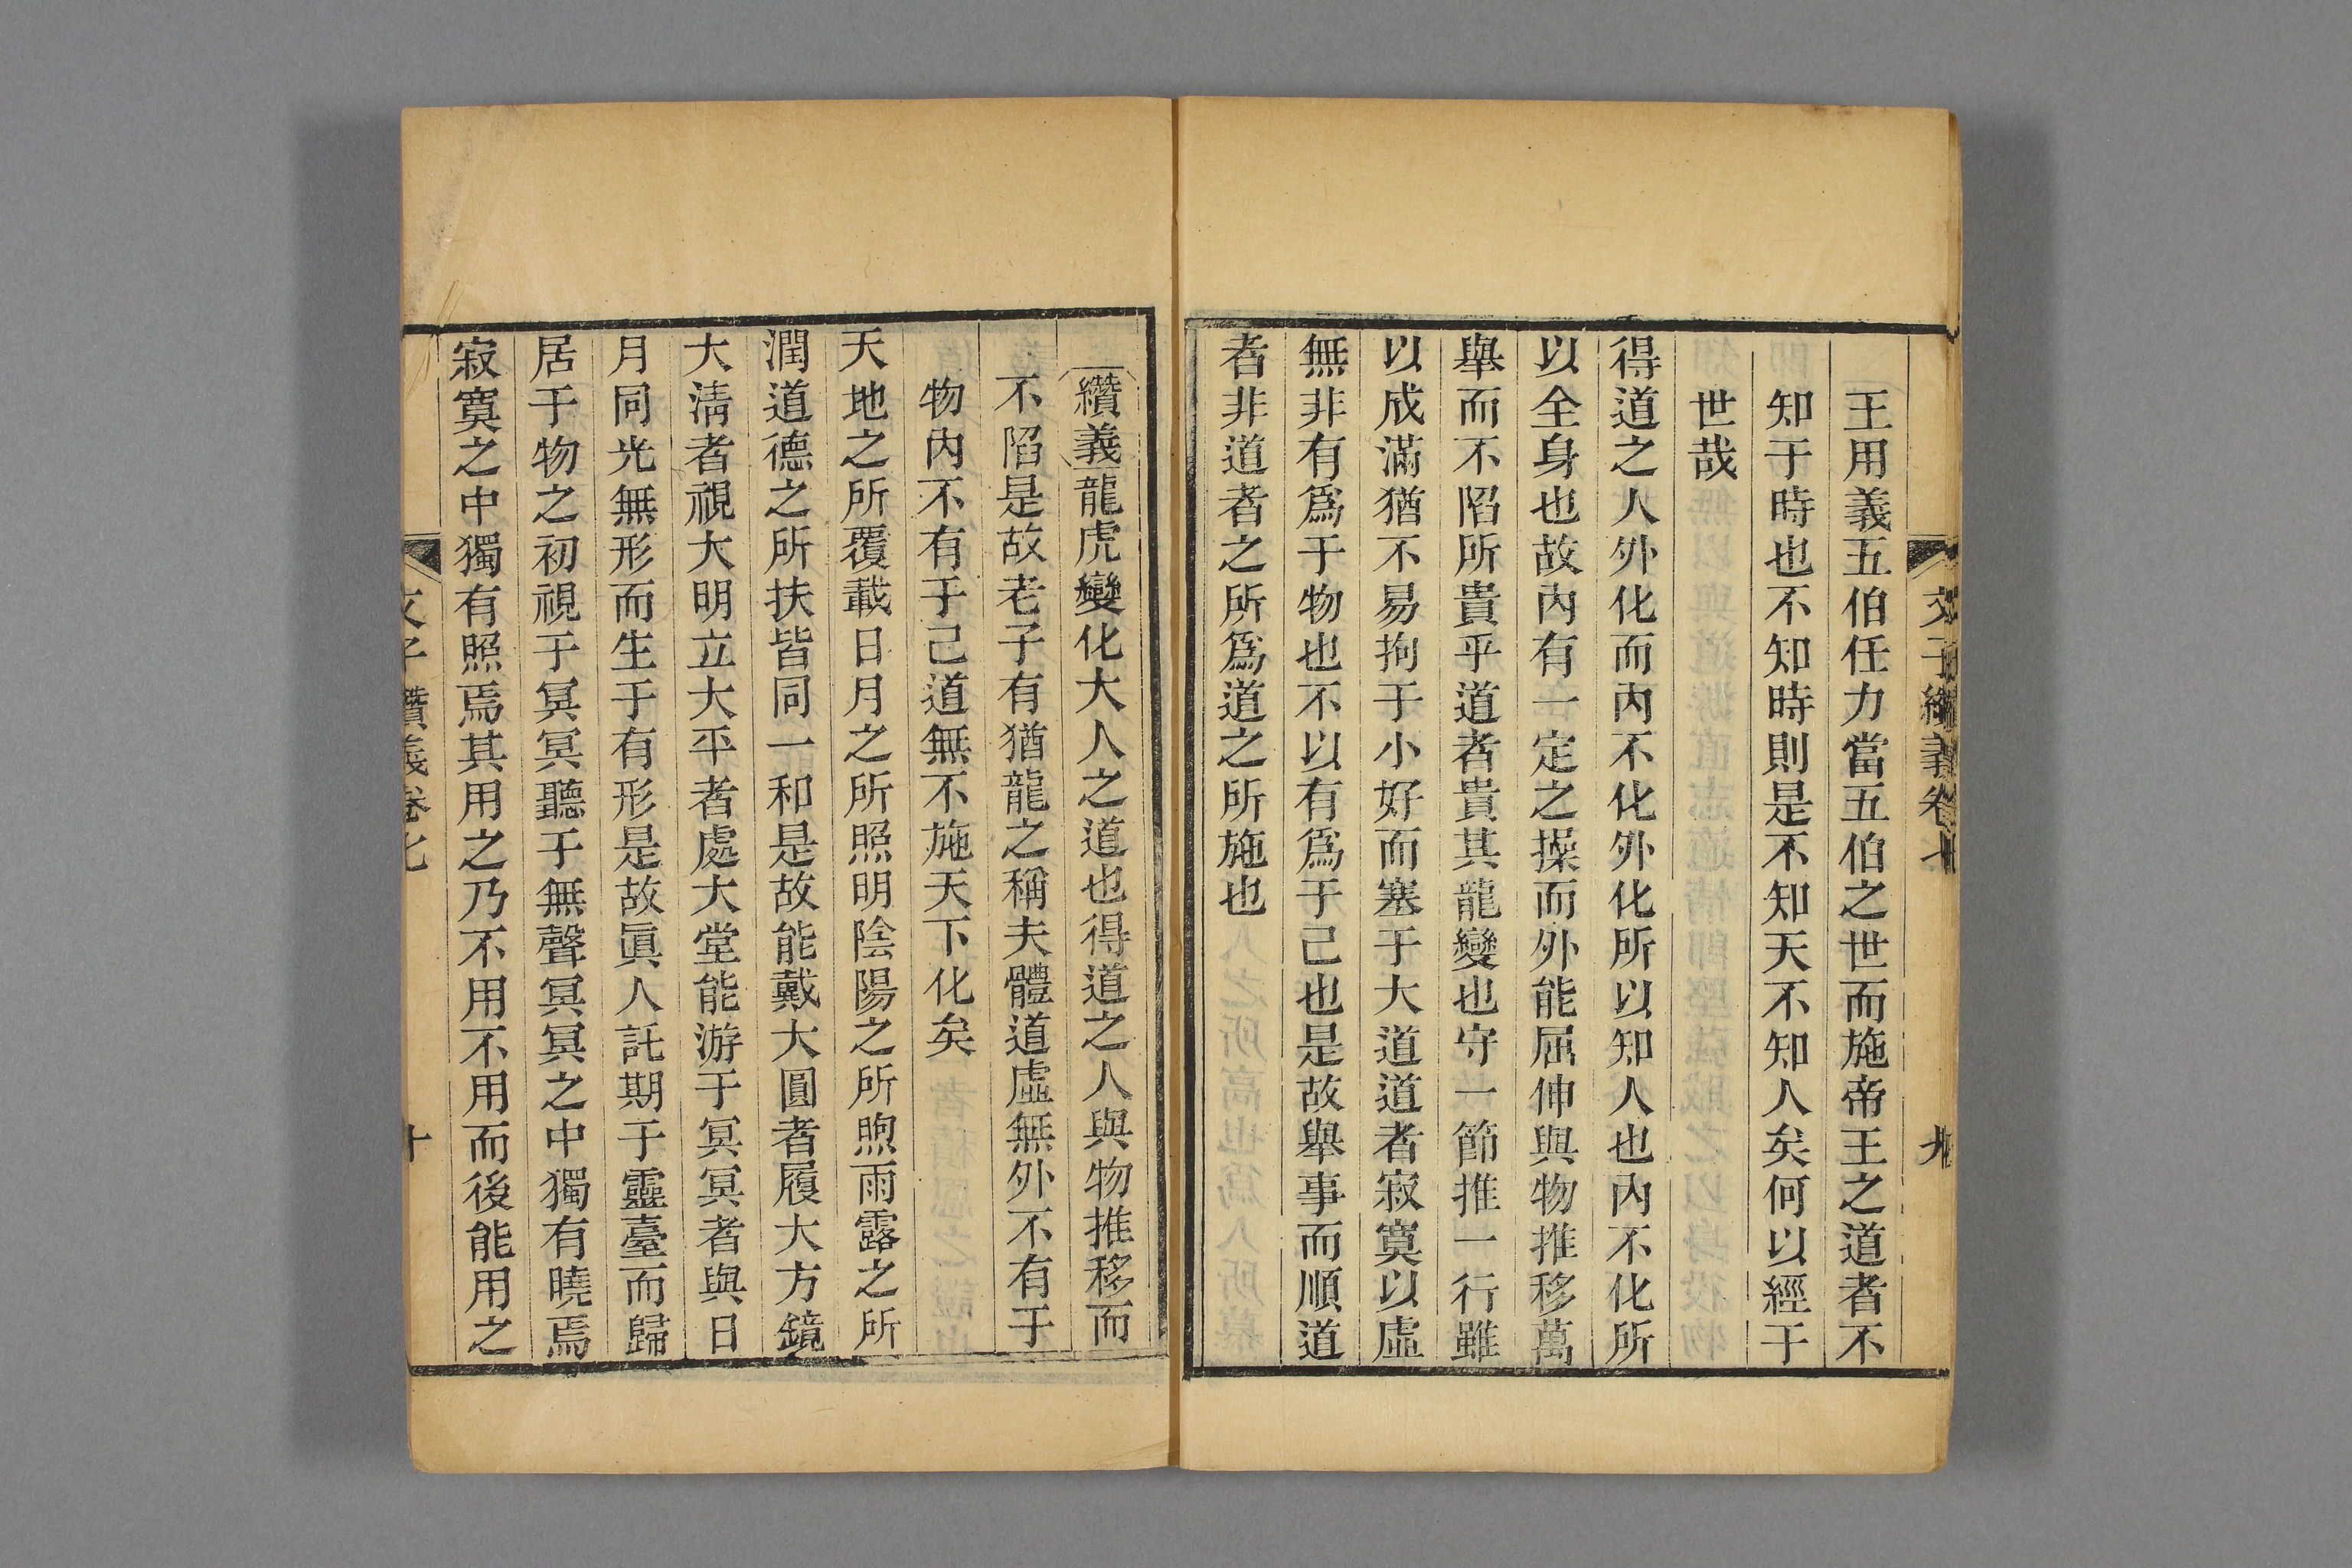 文子纘義卷七
九
王用義五伯任力當五伯之世而施帝王之道者不
知于時也不知時則是不知天不知人矣何以經于
世哉
得道之人外化而內不化外化所以知人也內不化所
以全身也故內有一定之操而外能屈伸與物推移萬
舉而不陷所貴乎道者貴其龍變也守一節推一行雖
以成滿猶不易拘于小好而塞于大道道者寂寞以虛
無非有爲于物也不以有爲于己也是故舉事而順道
者非道者之所爲道之所施也
纘義龍虎變化大人之道也得道之人與物推移而
不陷是故老子有猶龍之稱夫體道虛無外不有于
物內不有于己道無不施天下化矣
天地之所覆載日月之所照明陰陽之所煦雨露之所
潤道德之所扶皆同一和是故能戴大圓者履大方鏡
大清者視大明立大平者處大堂能游于冥冥者與日
月同光無形而生于有形是故眞人託期于靈臺而歸
居于物之初視于冥冥聽于無聲冥冥之中獨有曉焉
寂寞之中獨有照焉其用之乃不用不用而後能用之
文子纘義卷七
十